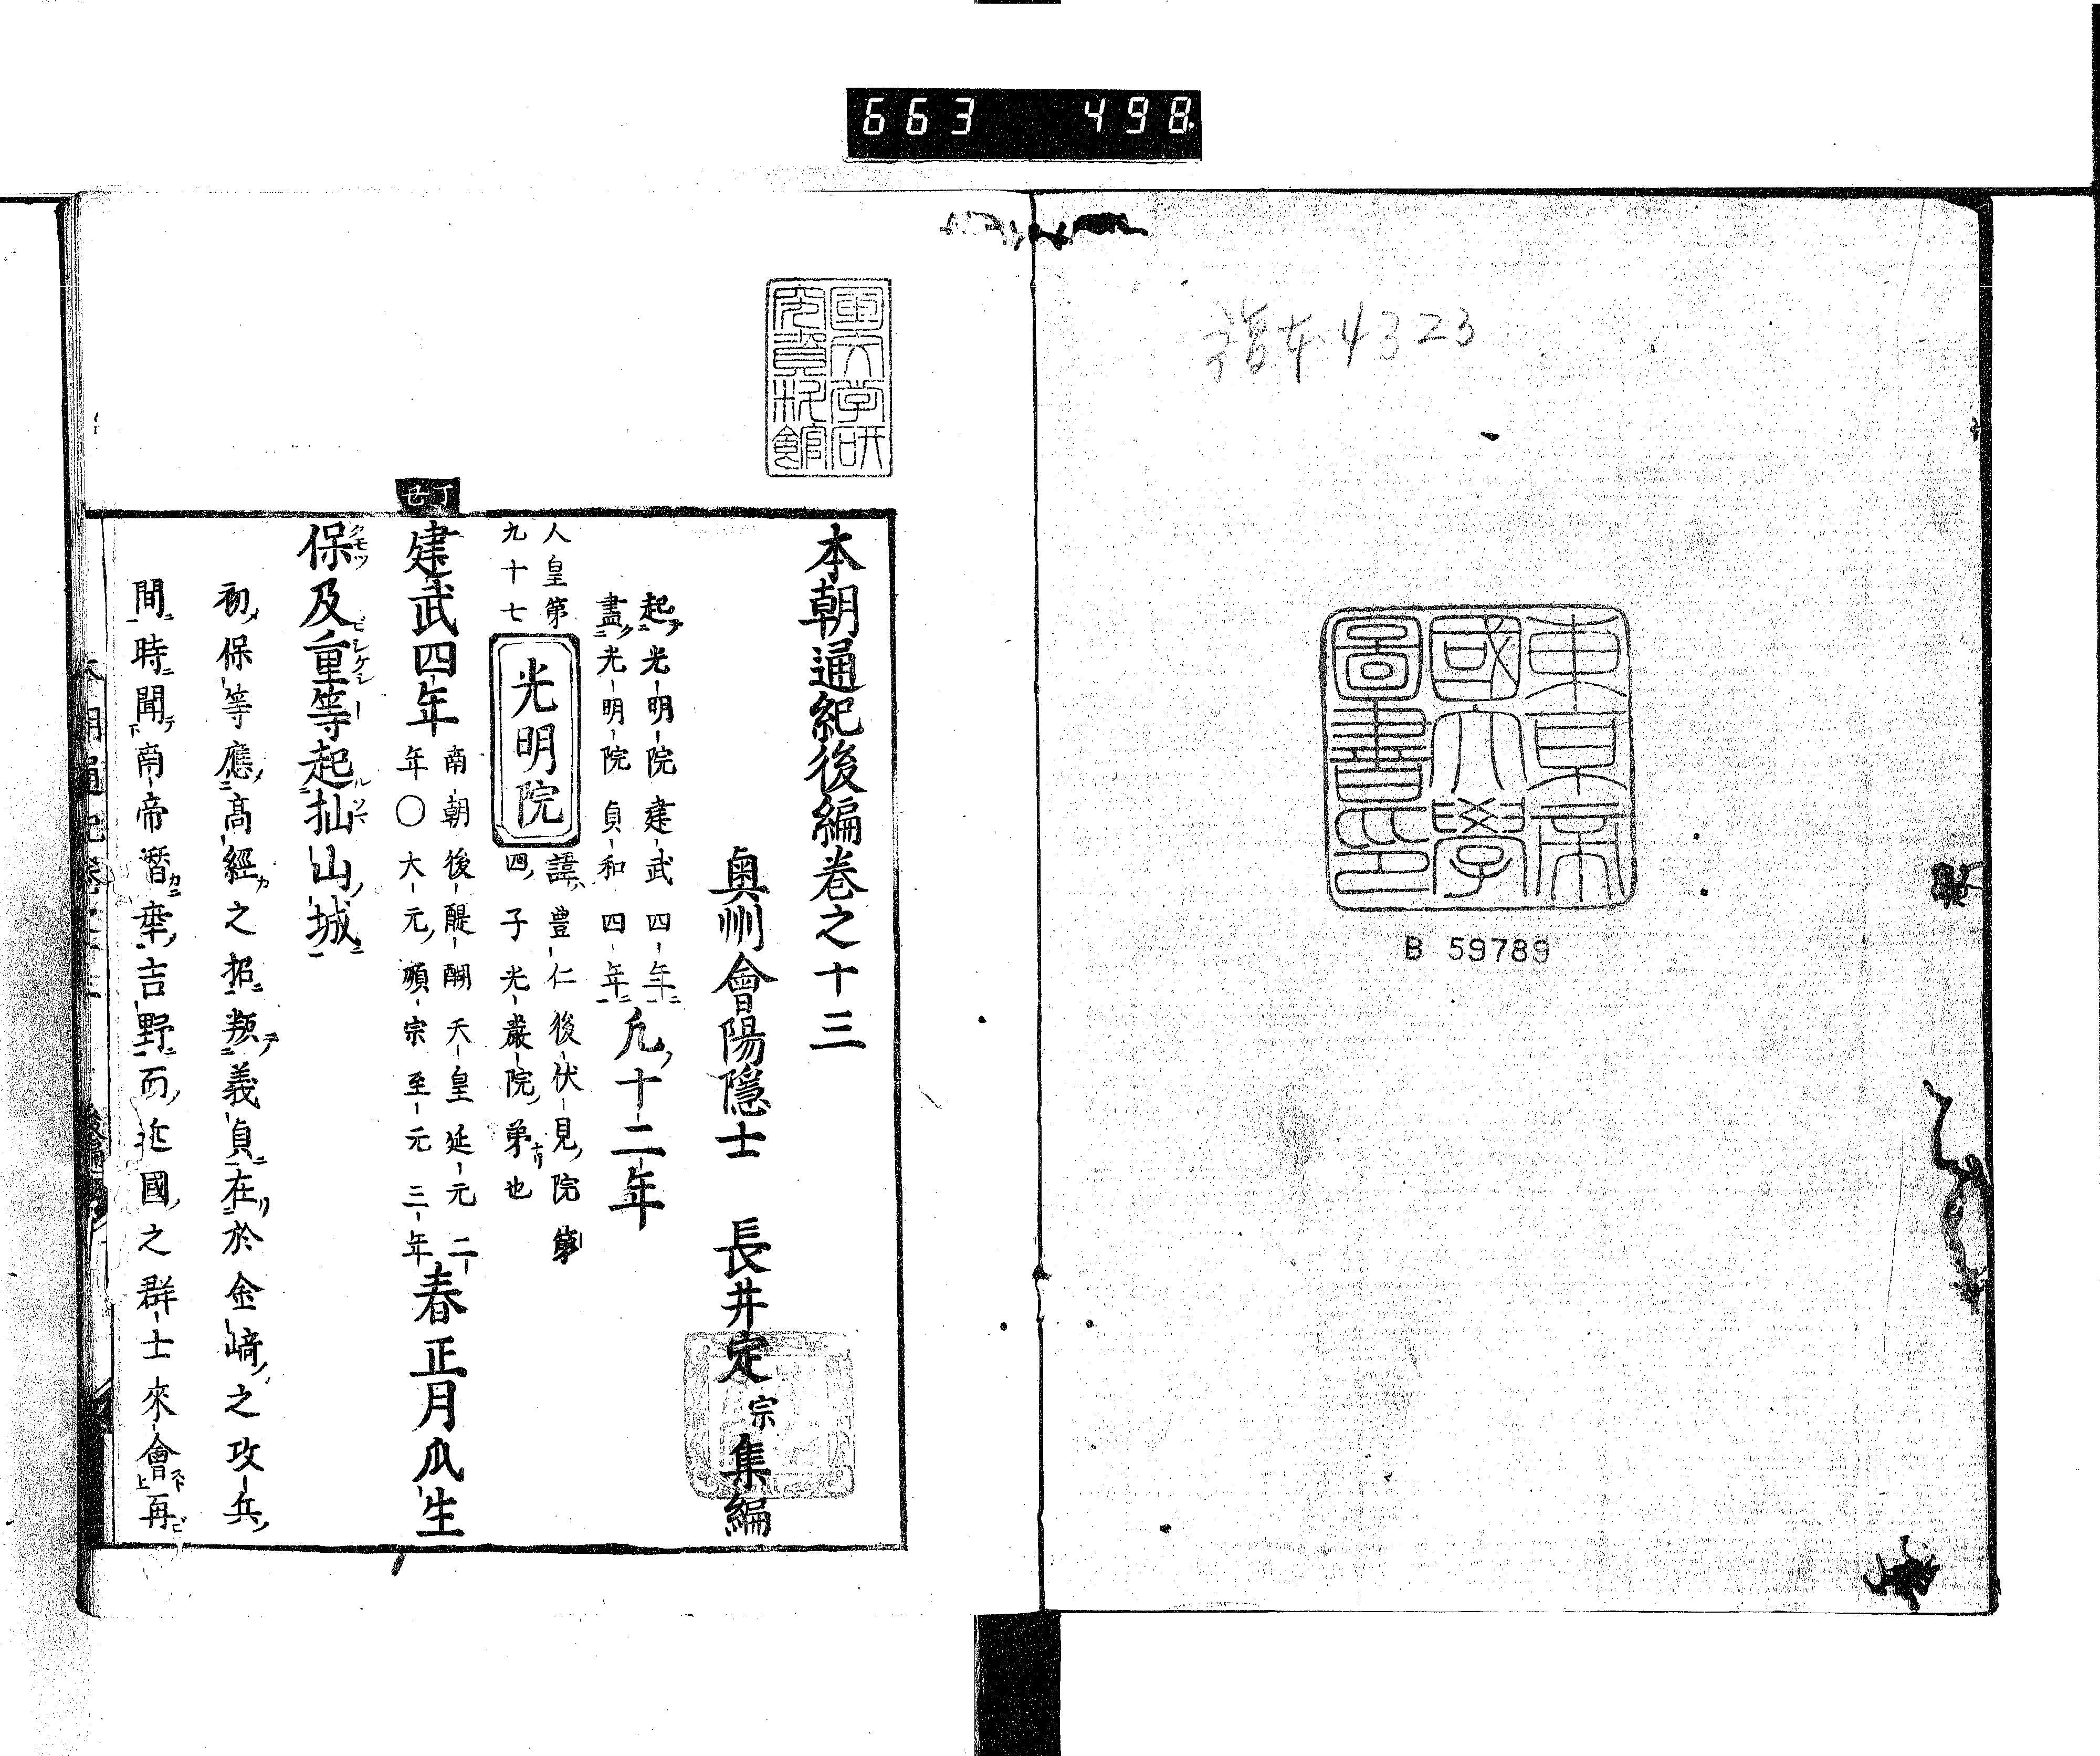 663 498
複本4323
東京帝
國大學
圖書印
B 59789
国文学研
究資料館
本朝通紀後編卷之十三
奥州會陽隱士 長井定宗集編
起光明院建武四年
盡光明院貞和四年
凡十二年
人皇第
九十七
光明院
諱豊仁後伏見院第
四子光嚴院弟也
丁
丑
建武四年
南朝後醍醐天皇延元二
年○大元順宗至元三年
春正月瓜生
保及重等起拁山城
初保等應高經之招叛義貞在於金﨑之攻兵
間時聞南帝潛幸吉野而近國之群士來會再